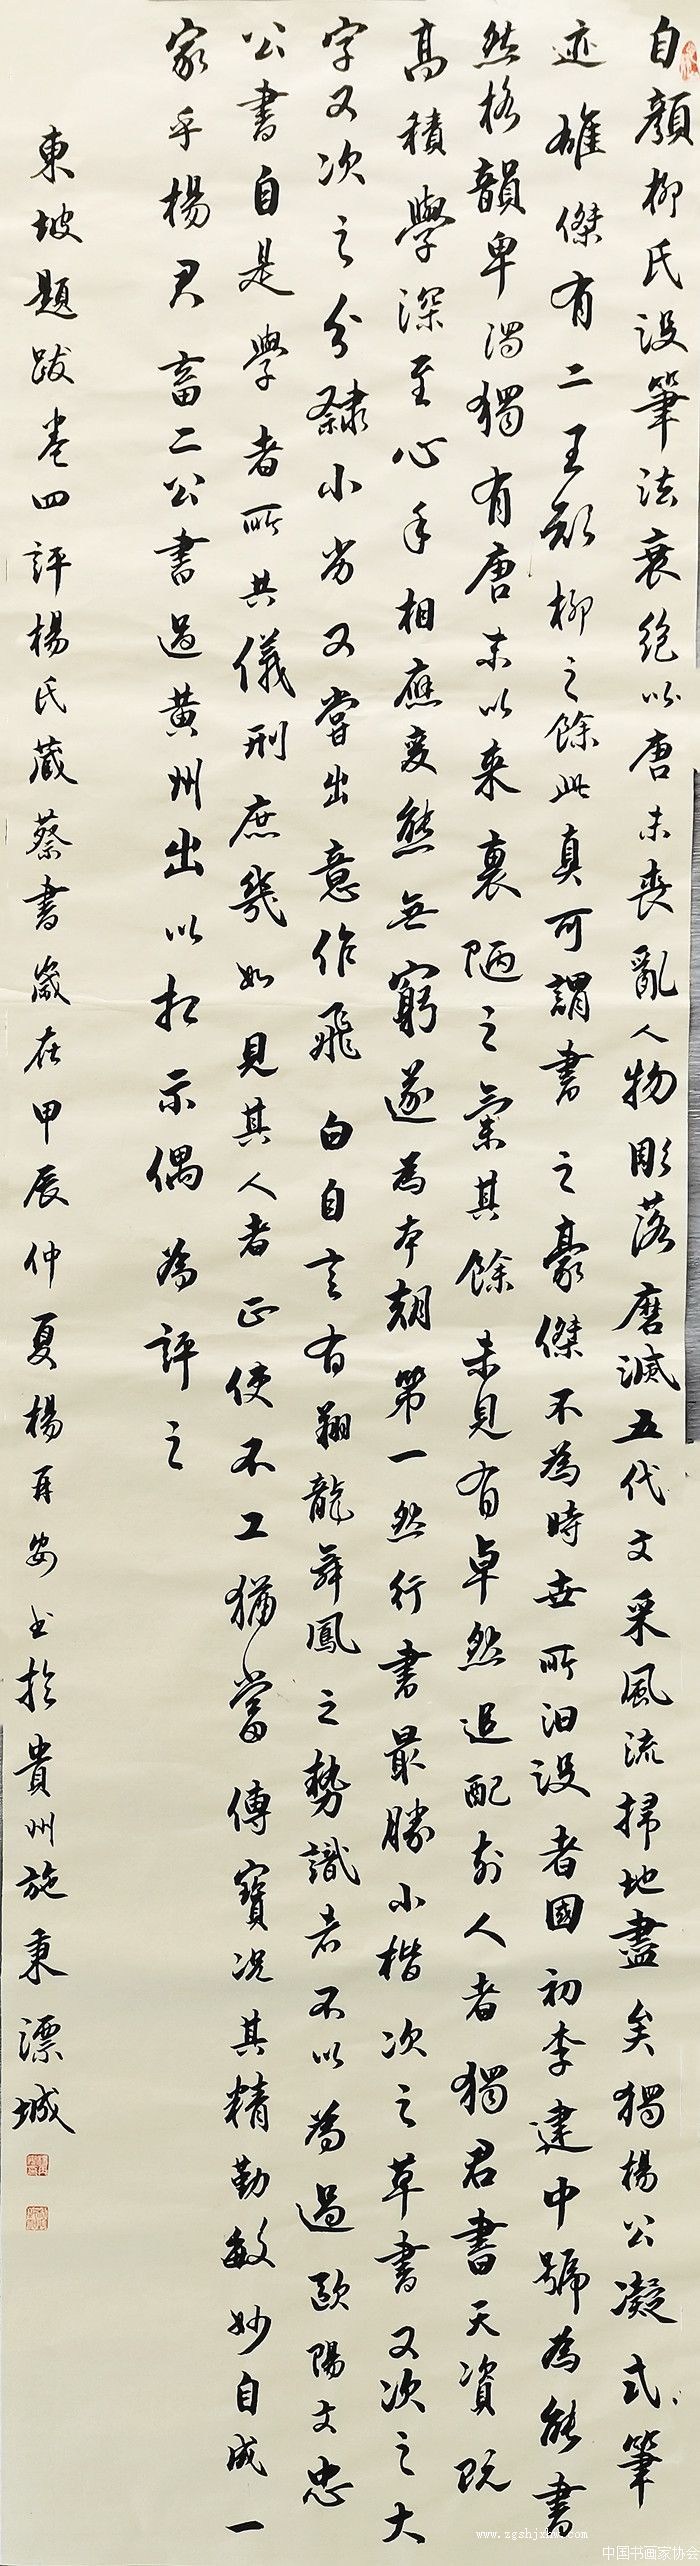 自顏柳氏沒筆法衰絕以唐末喪亂人物彫落磨滅五代文采風流掃地盡矣獨楊公凝式筆
迹雄傑有二王顏柳之餘此真可謂書之豪傑不為時世所汩沒者國初李建中號為能書
然格韻卑濁獨有唐末以來衰陋之氣其餘未見有卓然追配前人者獨君書天資既
高積學深至心手相應變態無窮遂為本朝第一然行書最勝小楷次之草書又次之大
字又次之分隸小劣又嘗出意作飛白自言有翔龍舞鳳之勢識者不以為過歐陽文忠
公書自是學者所共儀刑庶幾如見其人者正使不工猶當傳寶況其精勤敏妙自成一
家乎楊君畜二公書過黃州出以相示偶為評之
東坡題跋卷四評楊氏藏蔡書歲在甲辰仲夏楊再安書於貴州施秉漂城
中国书画家协会